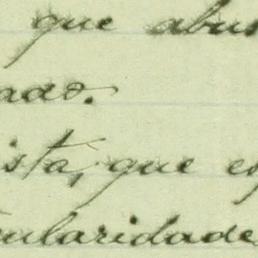 que abus
ado.
ista, que es
cularidade